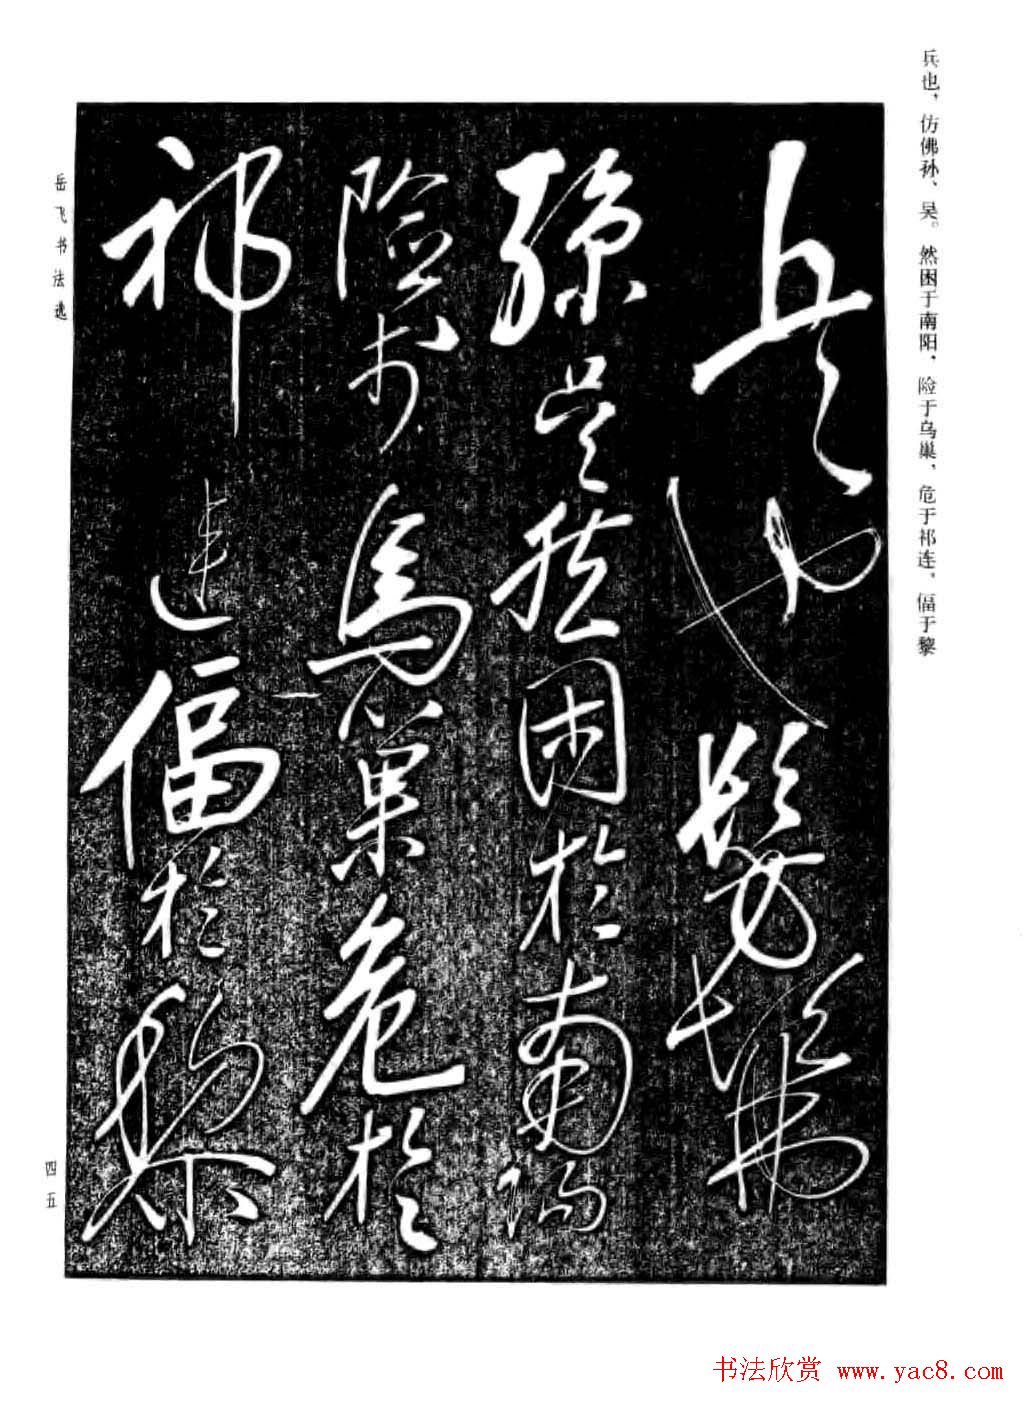 兵也，仿佛孙、吴。然困于南阳，险于乌巢，危于祁连，偪于黎
兵也髣髴
孫吴然困於南陽
险於烏巢危於
祁连偪於黎
岳飞书法选
四五
书法欣赏 www.yac8.com